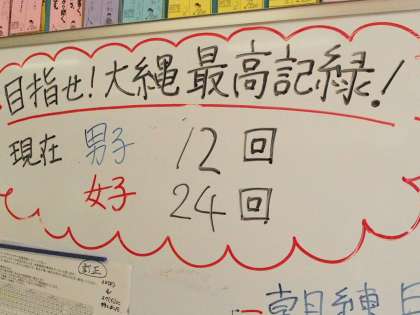 目指せ!大縄最高記緑!
現在 男子 12回
女子 24回
訂正
朝練日